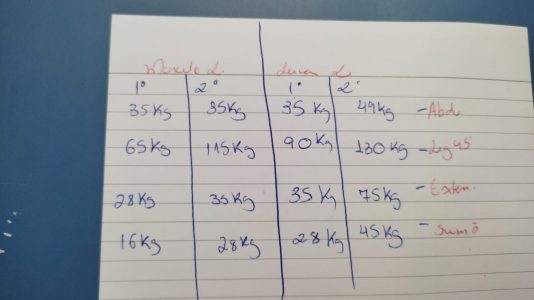 L. L.
1º 2º 1º 2º
35Kg 35Kg 35Kg 49Kg - Abd
65Kg 115Kg 90Kg 130Kg - Leg 45
28Kg 35Kg 35Kg 75Kg - Exten.
16Kg 28Kg 28Kg 45Kg - Sumô